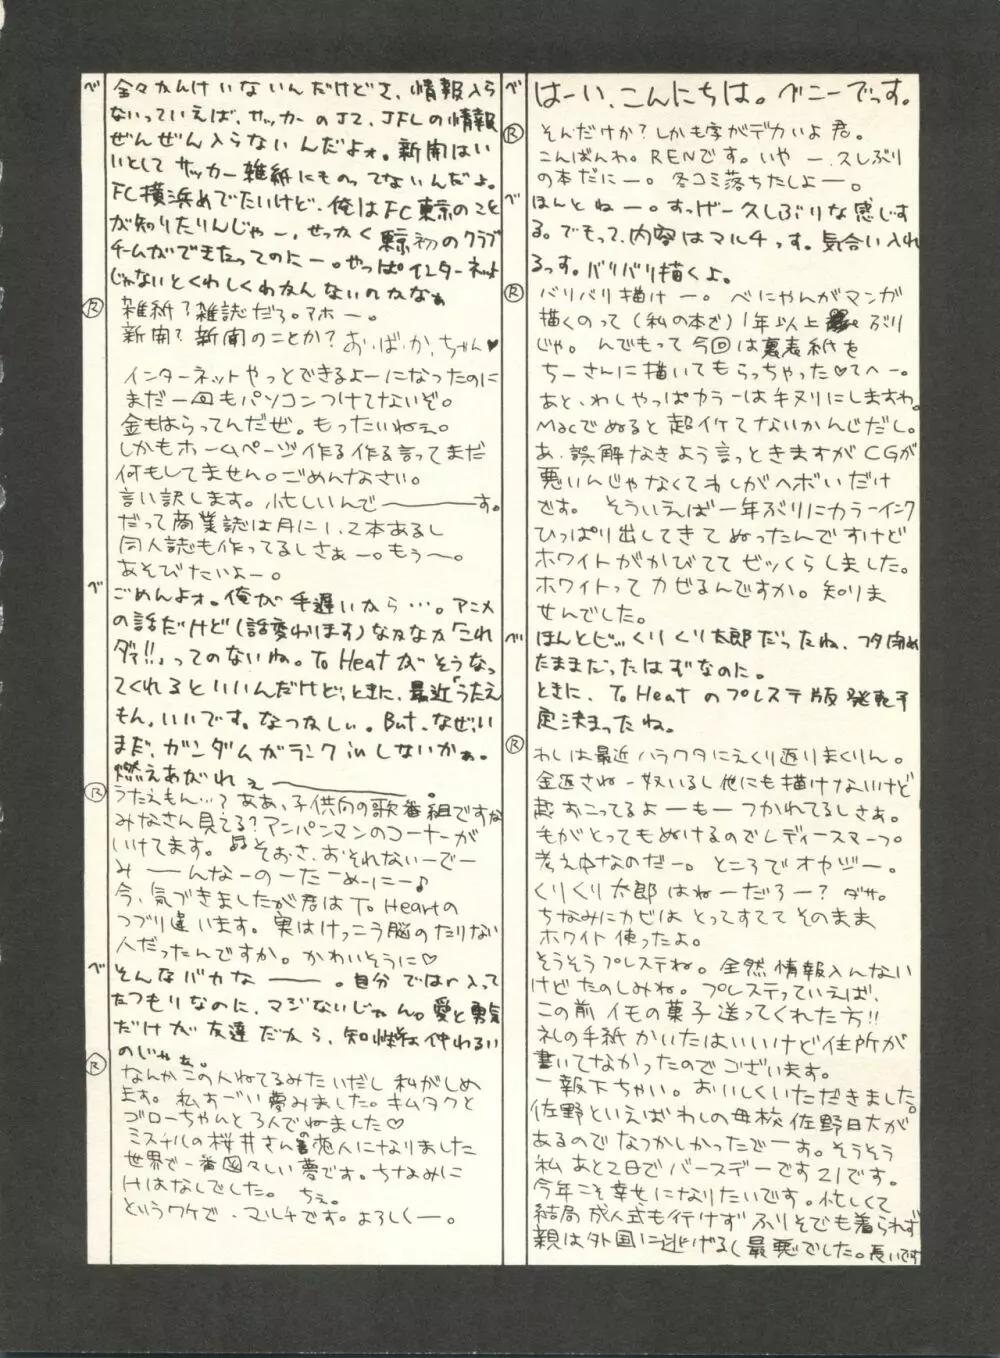 べ はーい、こんにちは。べニーでっす。
R そんだけか？しかも字がデカいよ君。
こんばんわ。RENです。いやー、久しぶり
の本だにー。冬コミ落ちたしよー。
べ ほんとねー。すっげー久しぶりな感じす
る。でもって、内容はマルチっす。気合い入れ
るっす。バリバリ描くよ。
R バリバリ描けー。べにゃんがマンガ
描くのって(私の本で)1年以上ぶり
じゃ。んでもって今回は裏表紙を
ちーさんに描いてもらっちゃった♡てへー。
あと、わしゃっぱカラーは手ヌリにしますわ。
Macでぬると超イケてないかんじだし。
あ、誤解なきよう言っときますがCGが
悪いんじゃなくてわしがヘボいだけ
です。そういえば一年ぶりにカラーインク
ひっぱり出してきてぬったんですけど
ホワイトがかびててビックらしました。
ホワイトってカビるんですか。知りま
せんでした。
べ ほんとビックリくり太郎だったね、フタ閉め
たままだったはずなのに。
ときに、To Heartのプレステ版発売予
定決まったね。
R わしは最近ハラワタにえくり返りまくりん。
金返さねー奴いるし他にも描けないけど
超おこってるよーもーつかれてるしさぁ。
毛がとってもぬけるのでレディースマープ。
考え中なのだー。ところでオヤジー。
くりくり太郎はねーだろー？ダサ。
ちなみにカビはとってすててそのまま
ホワイト使ったよ。
そうそうプレステね。全然情報入んない
けどたのしみね。プレステっていえば、
この前イモの菓子送ってくれた方!!
礼の手紙かいたはいいけど住所が
書いてなかったのでございます。
一報下ちゃい。おいしくいただきました。
佐野といえばわしの母校佐野日大が
あるのでなつかしかったでーす。そうそう
私あと2日でバースデーです21です。
今年こそ幸せになりたいです。忙しくて
結局成人式も行けずふりそでも着られず
親は外国に逃げるし最悪でした。長いです
べ 全々かんけいないんだけどさ、情報入ら
ないっていえば、サッカーのJ2、JFLの情報
ぜんぜん入らないんだよォ。新聞はい
いとしてサッカー雑紙にものってないんだよ。
FC横浜めでたいけど、俺はFC東京のこと
が知りたりんじゃー、せっかく東京初のクラブ
チームができたってのにー。やっぱインターネット
じゃないとくわしくわかんないのかなぁ
R 雑紙？雑誌だろ。アホー。
新聞？新聞のことか？お・ば・か・ちゃん♥
インターネットやっとできるよーになったのに
まだ一回もパソコンつけてないぞ。
金もはらってんだぜ。もったいねぇ。
しかもホームページ作る作る言ってまだ
何もしてません。ごめんなさい。
言い訳します。忙しいんで〜〜す。
だって商業誌は月に1、2本あるし
同人誌も作ってるしさぁー。もう〜。
あそびたいよー。
べ ごめんよォ。俺が手遅いから…。アニメ
の話だけど(話変わります)なかなか「これ
ダァ!!」ってのないね。To Heartがそうなっ
てくれるといいんだけど、ときに、最近「うたえ
もん」いいです。なつかしい。But、なぜ、い
まだ、ガンダムがランクinしないかぁ。
燃えあがれぇ〜〜。
R うたえもん…？ああ、子供向の歌番組ですな
みなさん見てる？アンパンマンのコーナーが
いけてます。♬そおさ、おそれないーでー
みーーんなーのーたーめーにー♪
今、気づきましたが君はTo Heartの
つづり違います。実はけっこう脳のたりない
人だったんですか。かわいそうに♡
べ そんなバカなーー。自分ではr入って
たつもりなのに、マジないじゃん。愛と勇気
だけが友達だから、知性は仲わるい
のじゃぁ。
R なんかこの人ねてるみたいだし私がしめ
ます。私すごい夢みました。キムタクと
ゴローちゃんと3人でねました♡
ミスチルの桜井さんの恋人になりました
世界で一番図々しい夢です。ちなみに
Hはなしでした。ちぇ。
というワケで、マルチです。よろしくー。